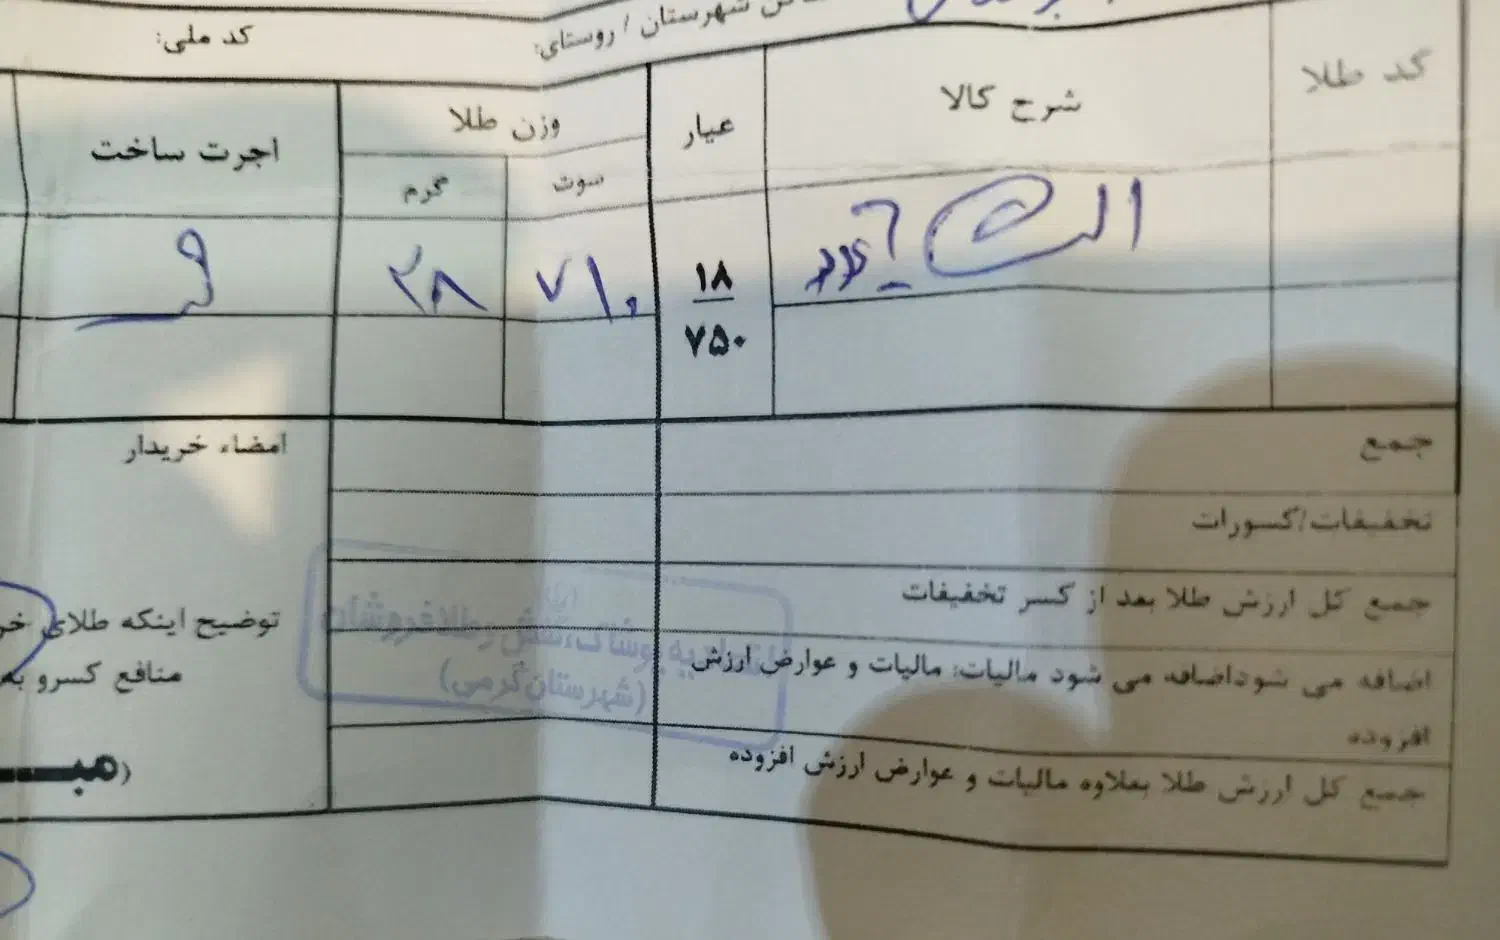 شهرستان / روستای:
کد ملی:
کد طلا
شرح کالا
عیار
وزن طلا
سوت
گرم
اجرت ساخت
۱۸
۷۵۰
۷۱۰
۲۸
جمع
تخفیفات/کسورات
جمع کل ارزش طلا بعد از کسر تخفیفات
اضافه می شوداضافه می شود مالیات: مالیات و عوارض ارزش
افزوده
جمع کل ارزش طلا بعلاوه مالیات و عوارض ارزش افزوده
امضاء خریدار
توضیح اینکه طلای
منافع کسرو
(شهرستان گرمی)